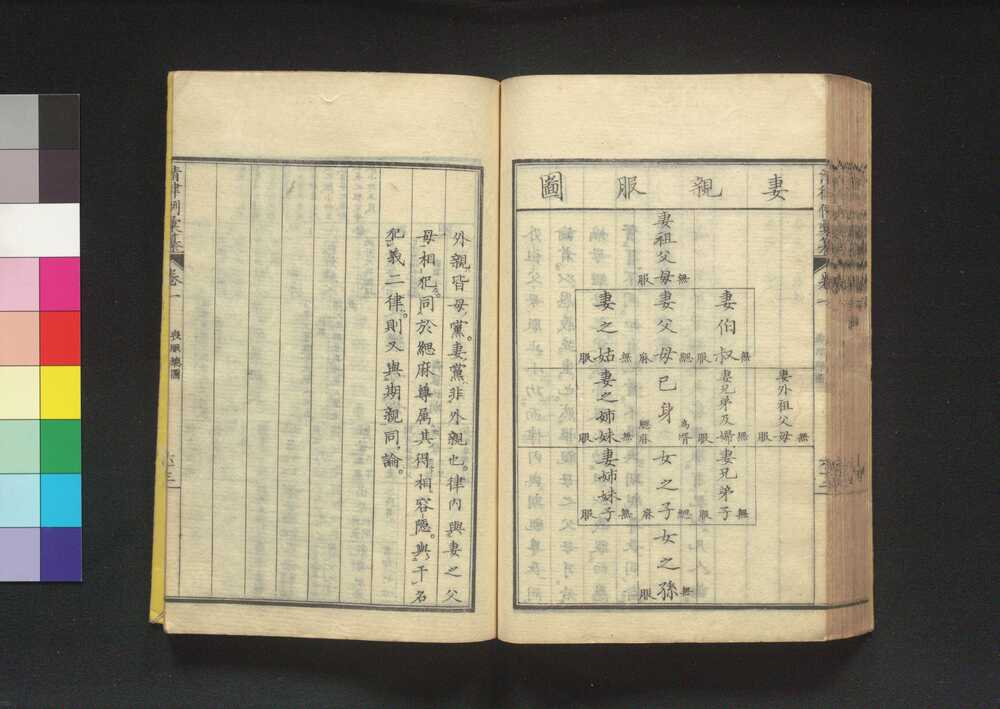 妻親服圖
妻祖父母 無服
妻伯叔 無服
妻父母 緦麻
妻之姑 無服
妻外祖父母 無服
妻兄弟及婦 無服
己身 為壻緦麻
妻之姊妹 無服
妻兄弟子 無服
女之子 緦麻
妻姊妹子 無服
女之孫 無服
清律例彙纂
卷一
喪服總圖
外親皆母黨妻黨非外親也。律內與妻之父
母相犯。同於緦麻尊属其得相容隱。與干名
犯義二律。則又與期親同論。